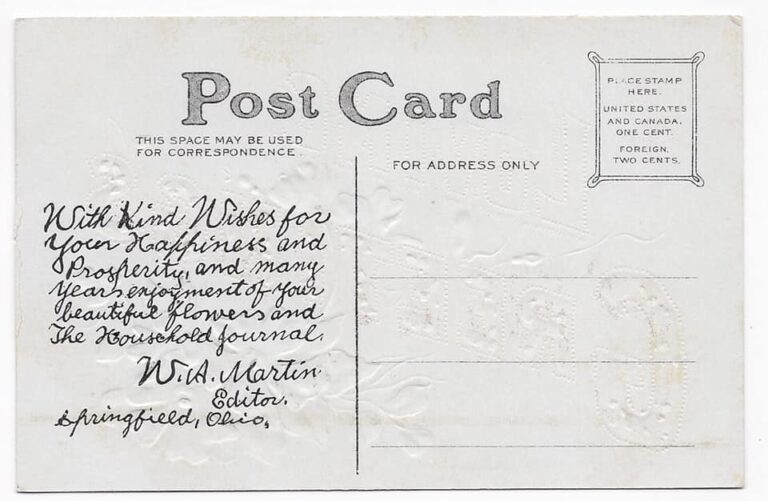 Post Card
THIS SPACE MAY BE USED
FOR CORRESPONDENCE.
FOR ADDRESS ONLY
PLACE STAMP
HERE.
UNITED STATES
AND CANADA.
ONE CENT.
FOREIGN.
TWO CENTS.
With Kind Wishes for
Your Happiness and
Prosperity, and many
years enjoyment of your
beautiful flowers and
The Household Journal.
W. A. Martin
Editor.
Springfield, Ohio.